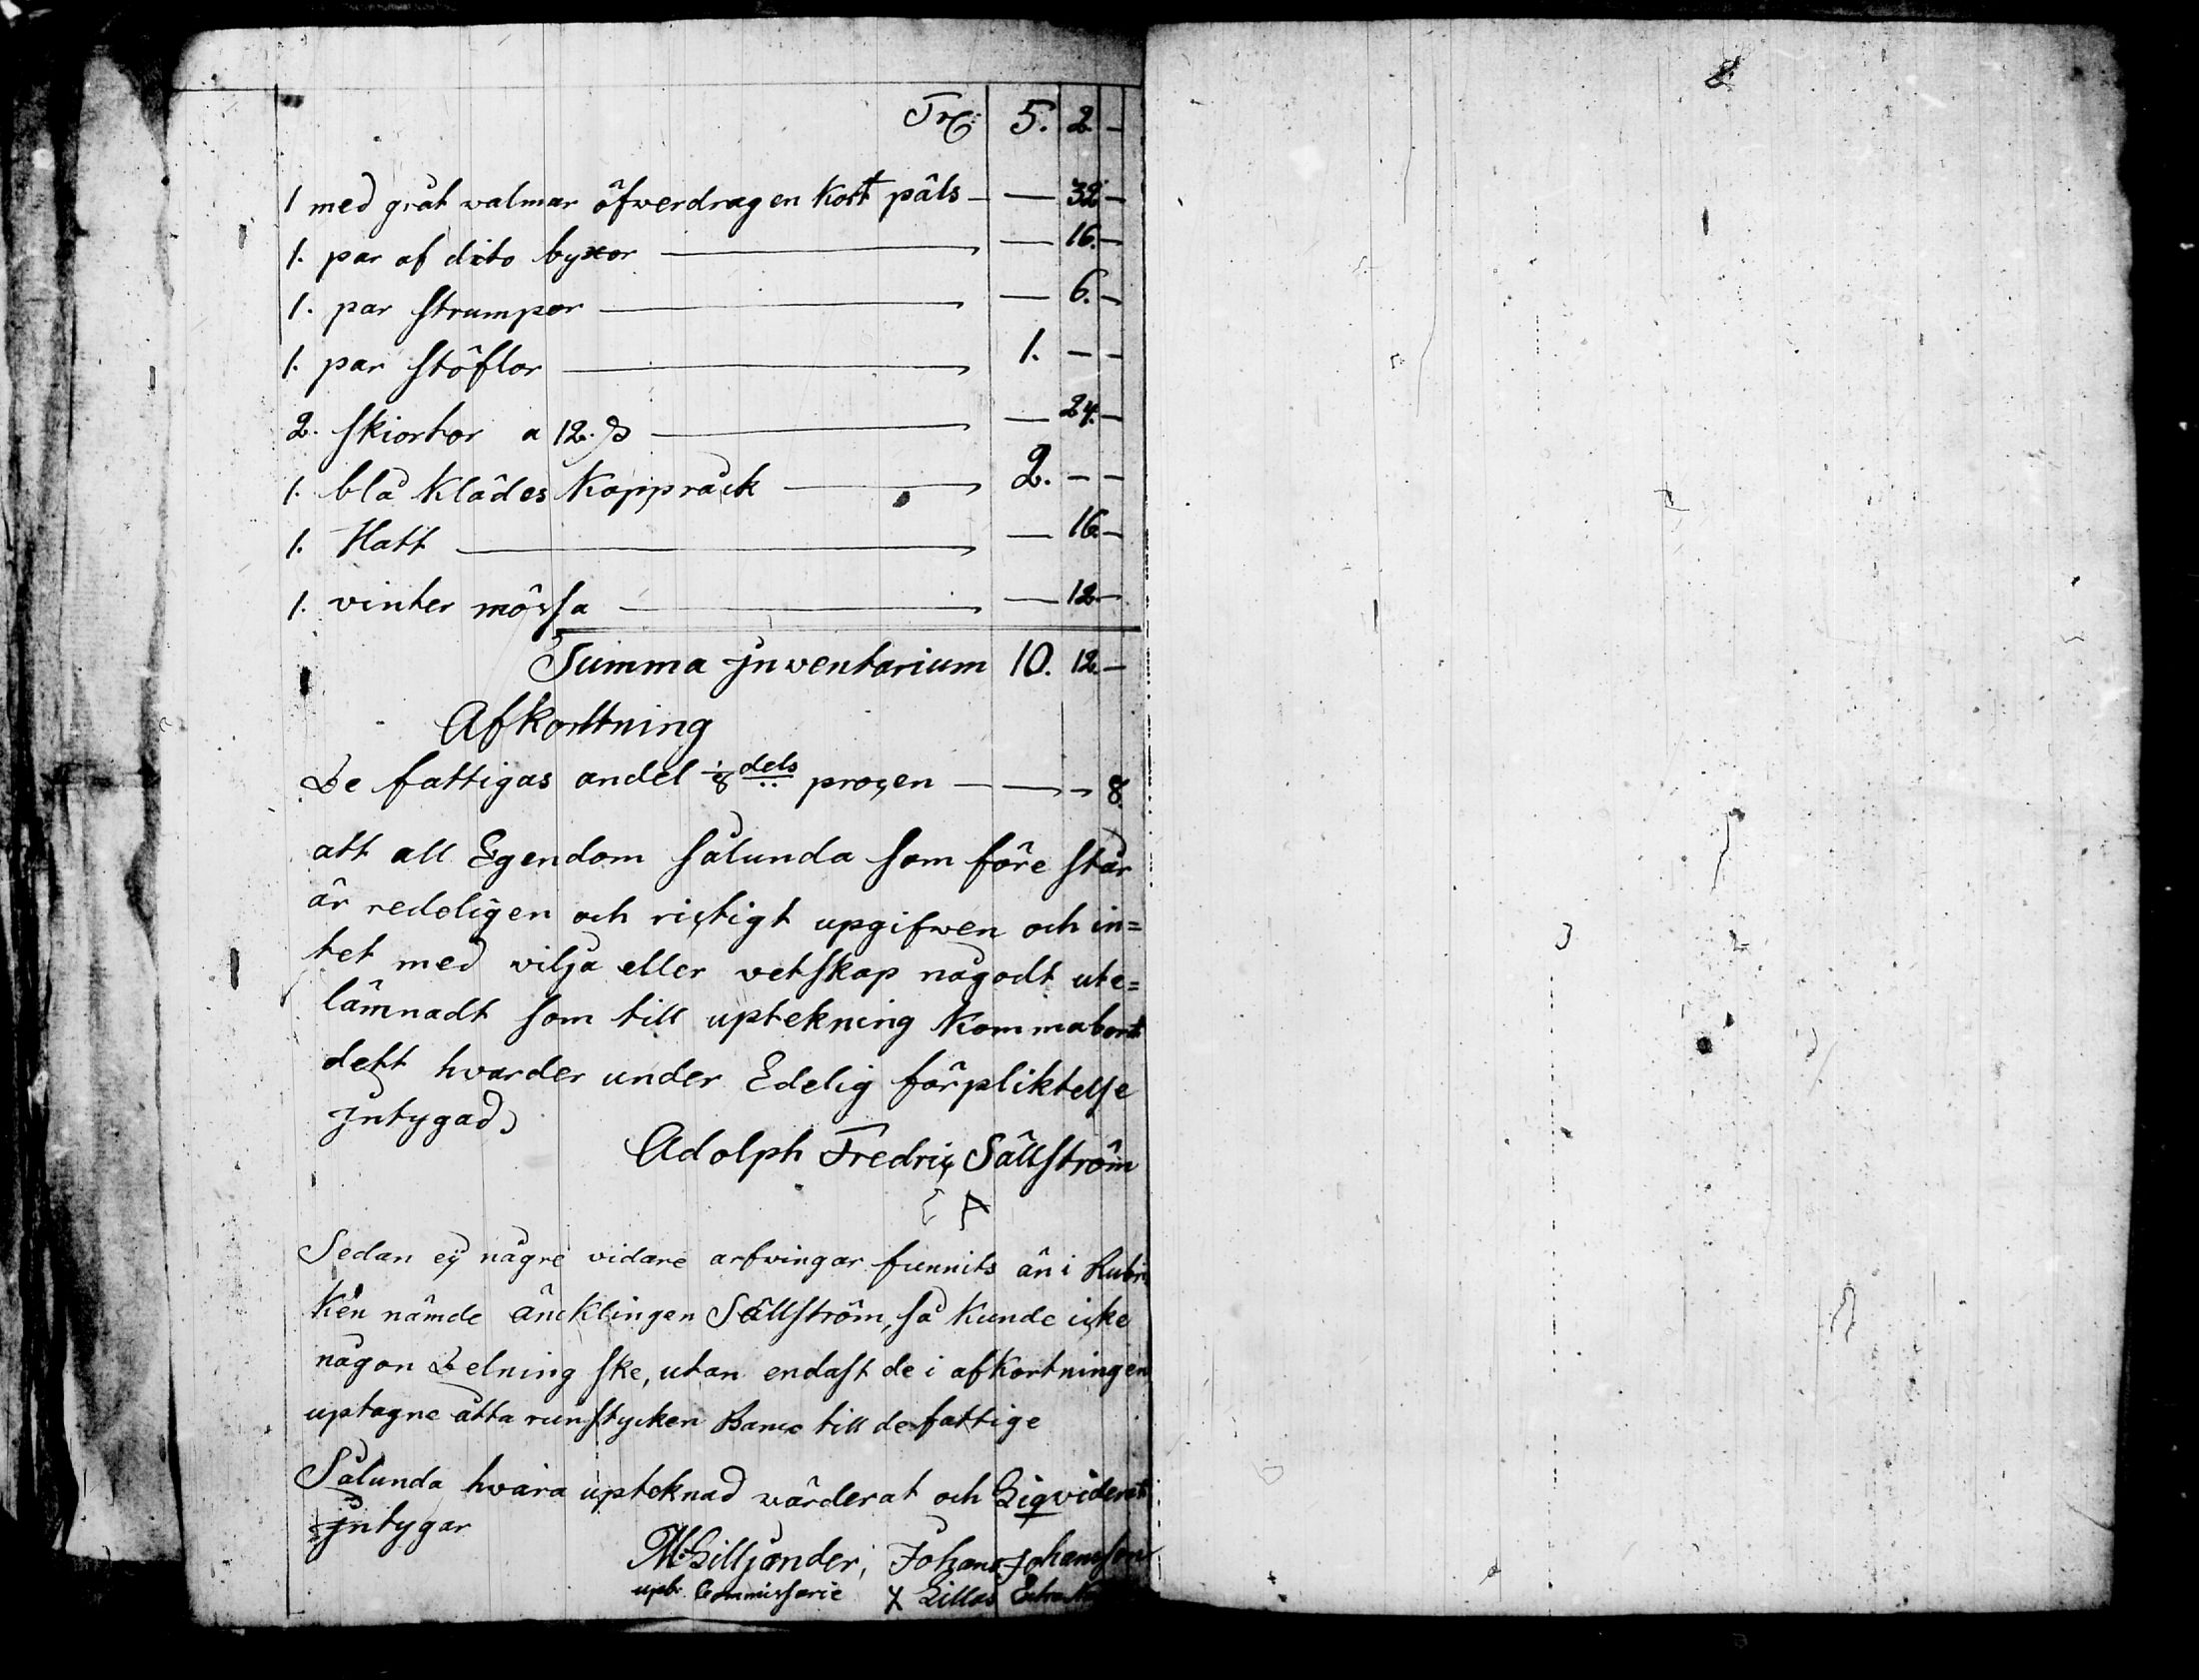 Trp: 5. 2. –
1 med gråt valmar öfwerdragen Kort päls — — 32 –
1. par af dito byxor — — 16. –
1. par strumpor — — 6. –
1. par stöflor — 1. – –
2. skiortor a 12. ß — — 24. –
1. blå Klädes Kappråck — 2. – –
1. Hatt — — 16 –
1. vinter mössa — — 12 –
Summa Jnventarium 10. 12. –
Afkortning
De fattigas andel 1/8 dels proçen — — – 8.
att all Egendom sålunda som före står
är redeligen och ricktigt upgifwen och in=
tet med vilja eller vetskap någodt ute=
lämnadt som till uptekning Komma bort
dett hvarder under Edelig förpliktelse
Jntygad
Adolph Fredric Sällström
Sedan ej någre vidare arfvingar funnits än i Rubri
Ken nämde äncklingen Sällström, så Kunde icke
någon Delning ske, utan endast de i afkortningen
uptagne åtta runstycken Banco till de fattige
Sålunda hvara upteknad värderat och Liqviderat
Jntygar
M: Lilljander, Johan Johansson
upb. Commissarie X Lillas